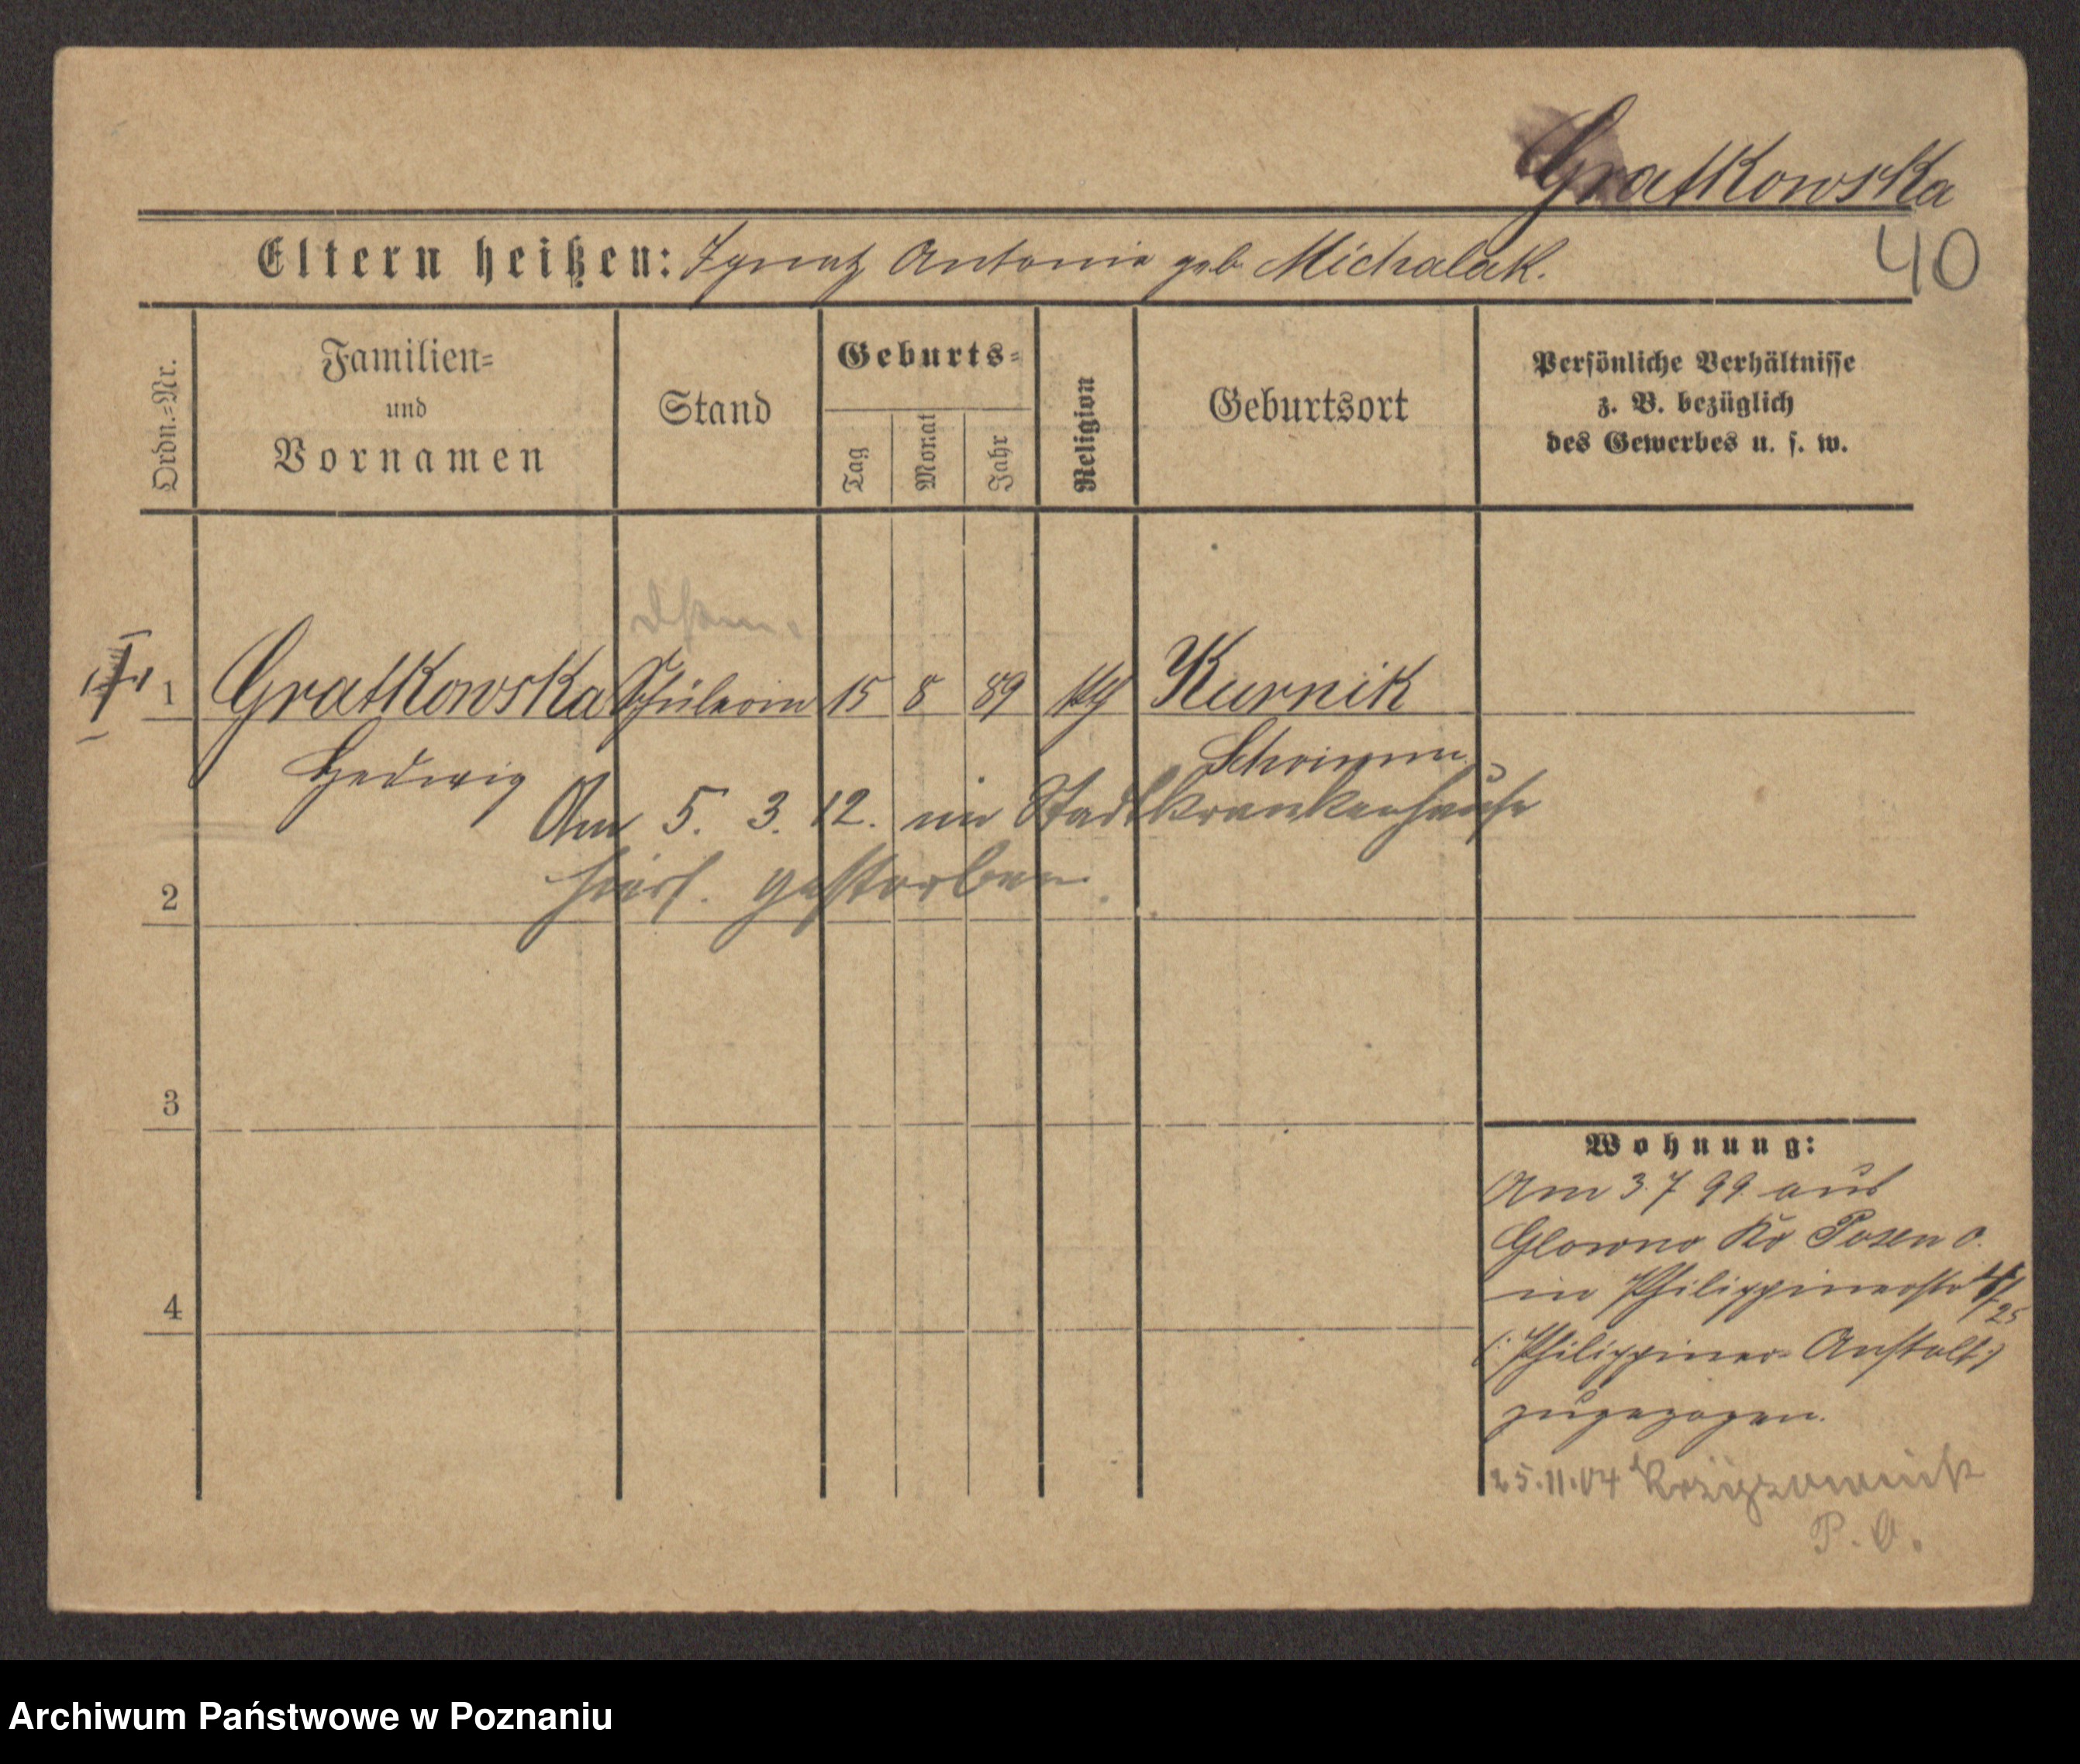 Gratkowska
40
Eltern heißen: Ignatz Antonie geb Michalak.
Ordn.=Nr.
Familien=
und
Vornamen
Stand
Geburts=
Tag
Monat
Jahr
Religion
Geburtsort
Persönliche Verhältnisse
z. B. bezüglich
des Gewerbes u. s. w.
1 Gratkowska Schülerin 15 8 89 kth Kurnik
Hedwig Schrimm
Am 5. 3. 12. im Stadtkrankenhause
hies. gestorben.
2
3
4
Wohnung:
Am 3.7 99 aus
Glowno Kr Posen O.
in Philippinerstr 4/
25
(: Philippiner-Anstalt :)
zugezogen.
25.11.04
P. O.
Archiwum Państwowe w Poznaniu